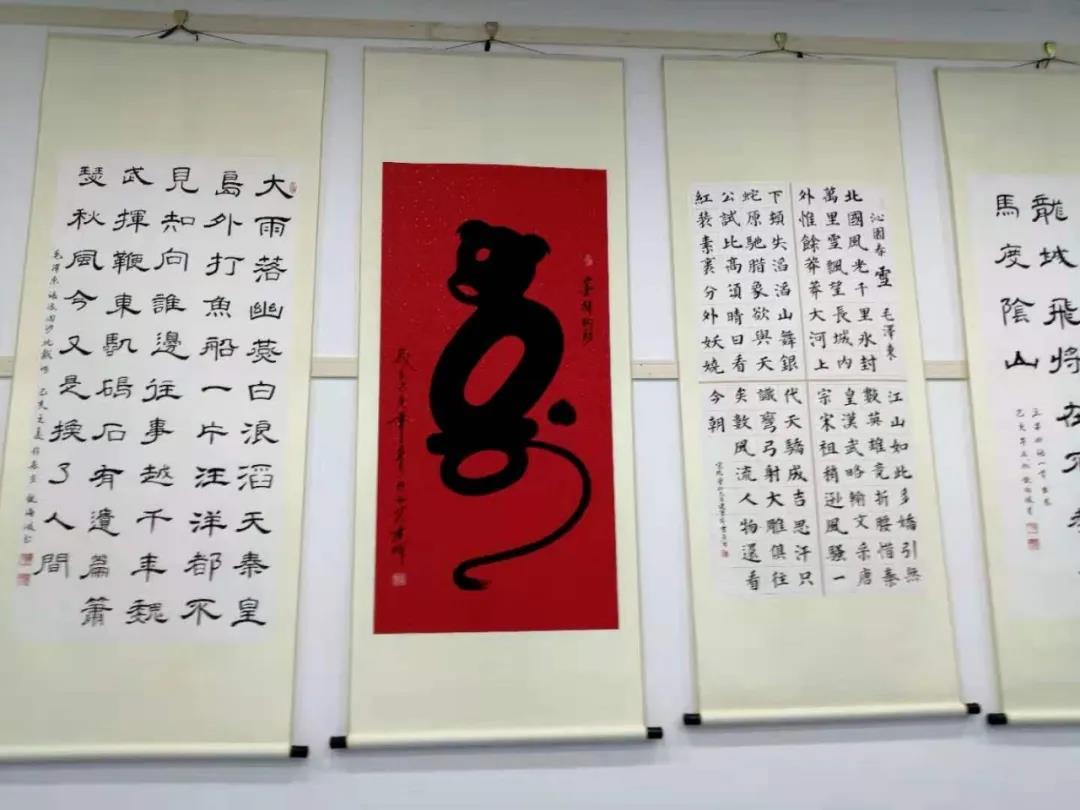 大雨落幽燕白浪滔天秦皇
島外打魚船一片汪洋都不
見知向誰邊往事越千年魏
武揮鞭東臨碣石有遺篇蕭
瑟秋風今又是換了人間
毛澤東浪淘沙北戴河 己亥之夏
沁園春 雪 毛澤東
北國風光千里冰封
萬里雪飄望長城内
外惟餘莽莽大河上
下頓失滔滔山舞銀
蛇原馳腊象欲與天
公試比高須晴日看
紅裝素裹分外妖嬈
江山如此多嬌引無
數英雄竞折腰惜秦
皇漢武略輸文采唐
宗宋祖稍遜風騷一
代天驕成吉思汗只
識彎弓射大雕俱往
矣數風流人物還看
今朝
龍城飛將在不
馬度陰山